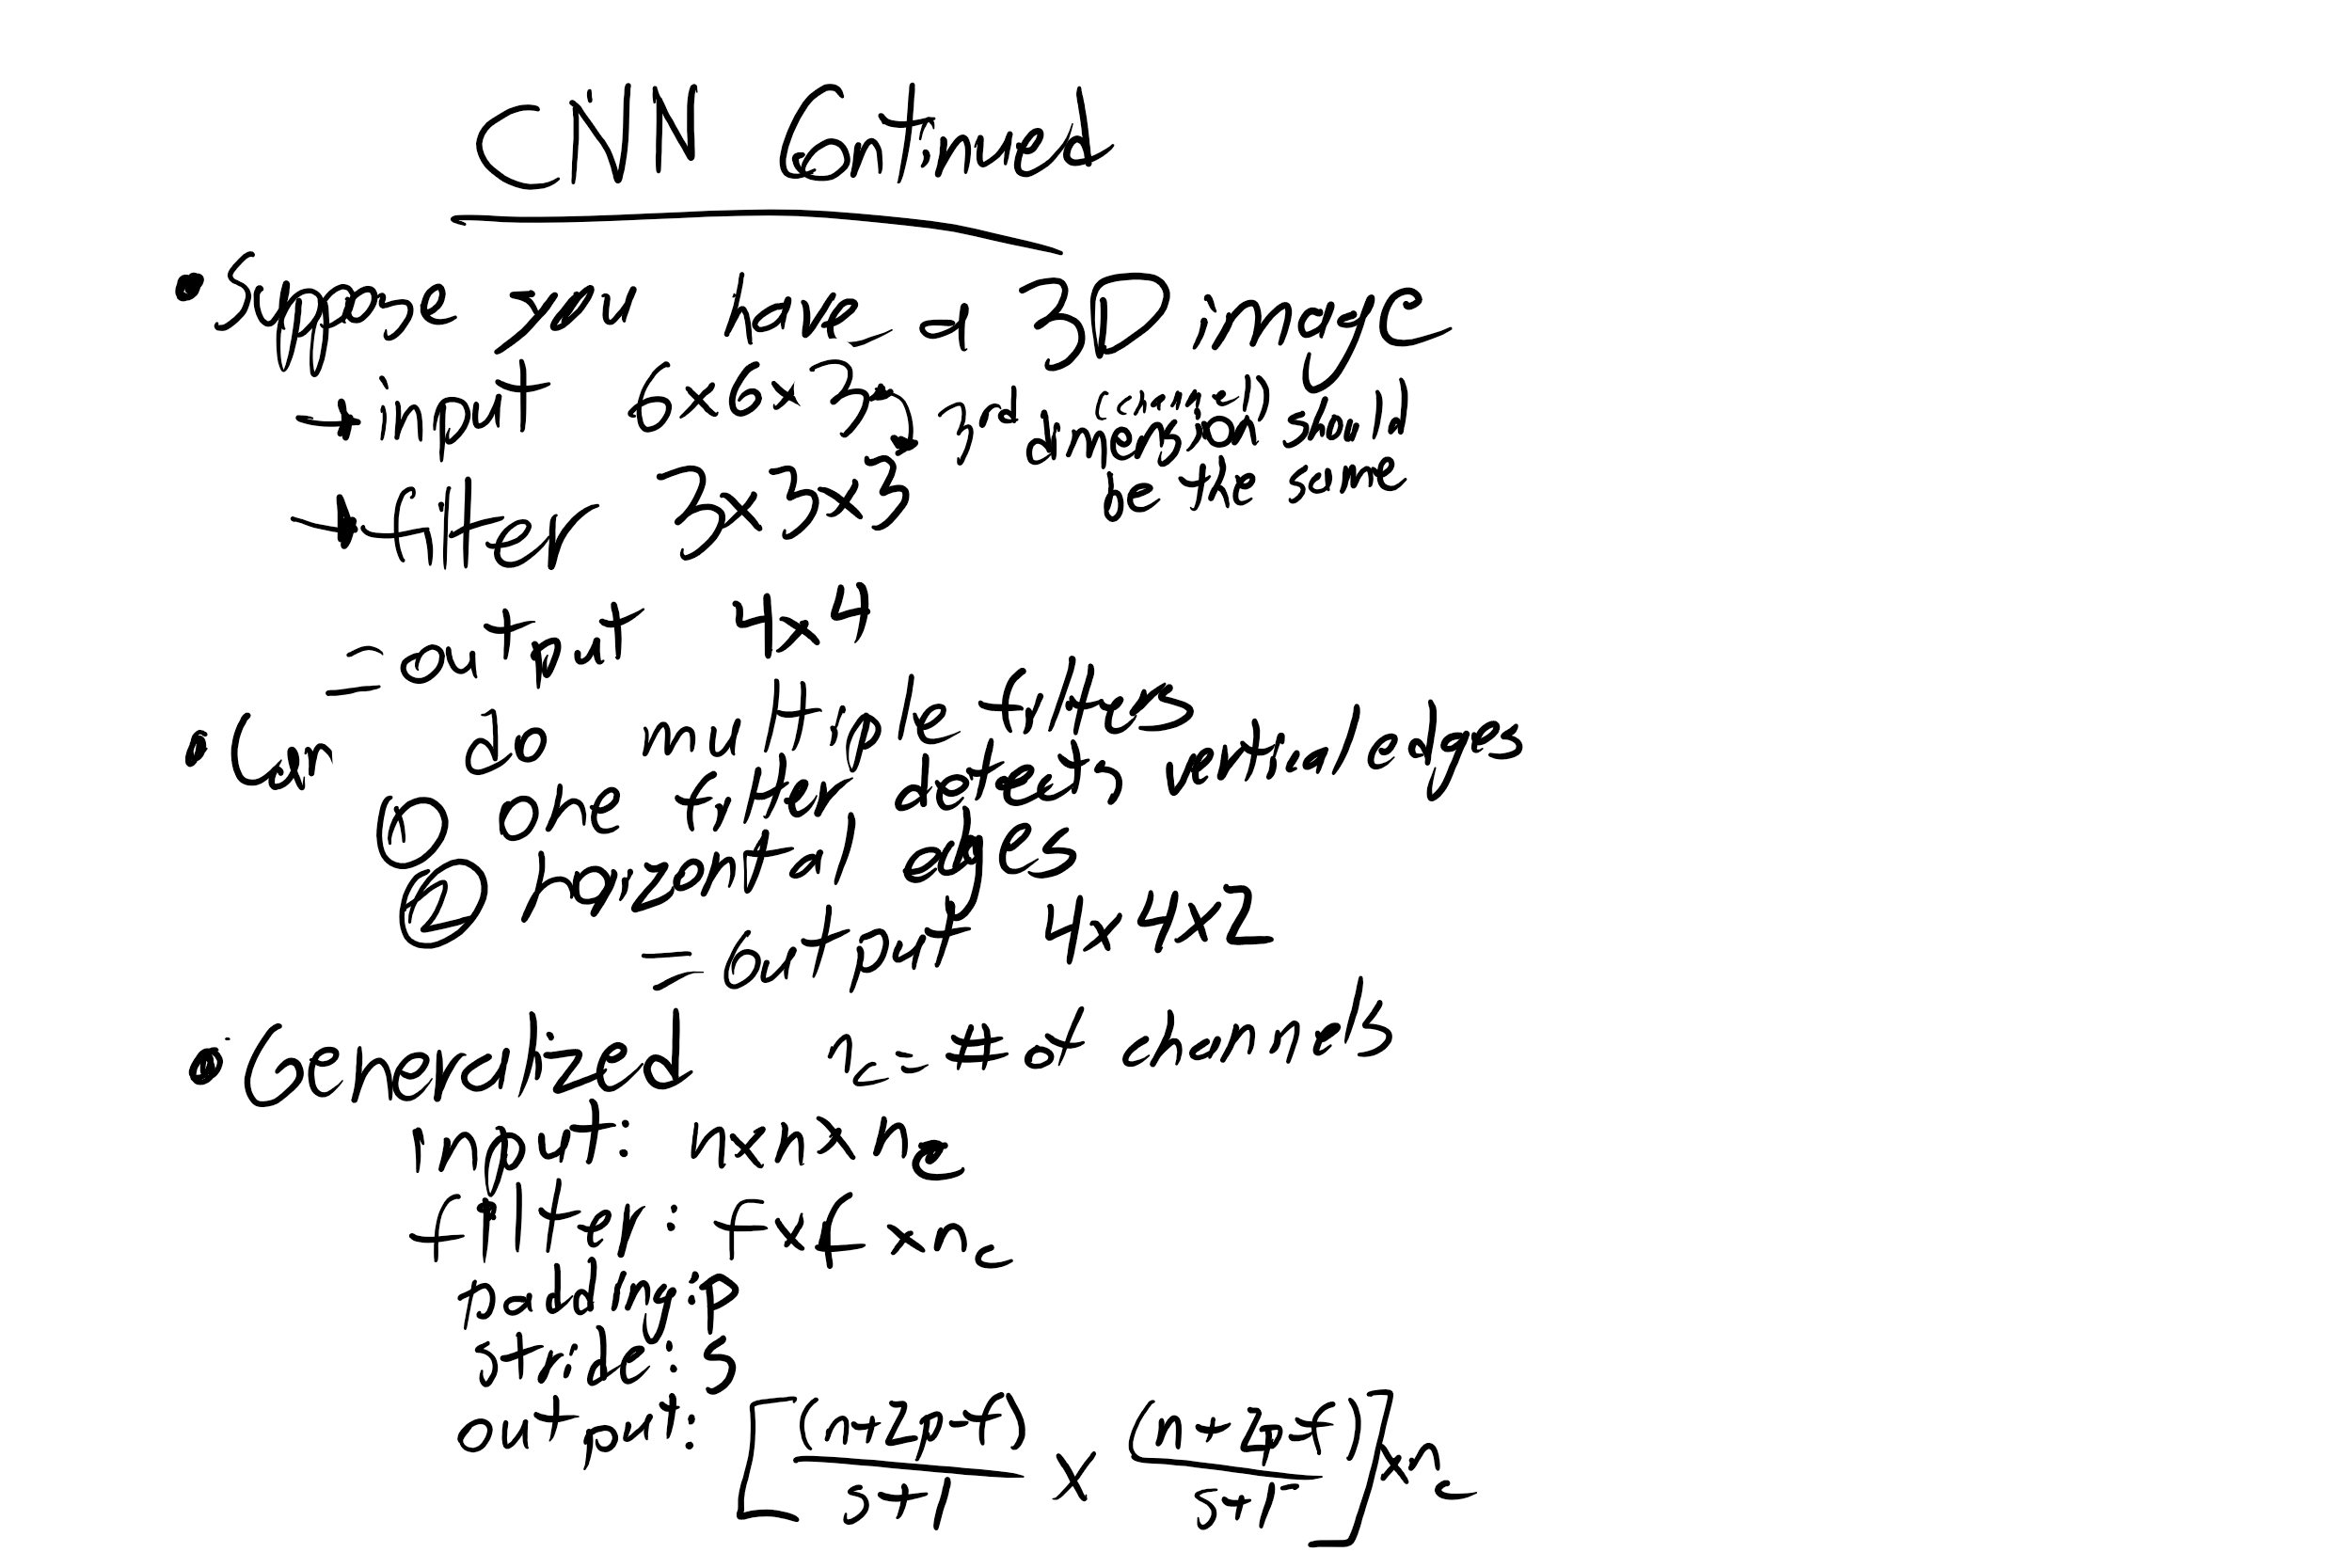 CNN Continued
• Suppose you have a 3D image
→ input 6x6x3 → 3rd dimension (channel) should
be the same
→ filter 3x3x3
= output 4x4
• Can do multiple filters
① one finds detects vertical edges
② horizontal edges
= output 4x4x2
• Generalized n_c = # of channels
input: n x n x n_c
filter: f x f x n_c
padding: p
stride: s
output: [(n+2p-f)/s+1 x (n+2p-f)/s+1] x n_c